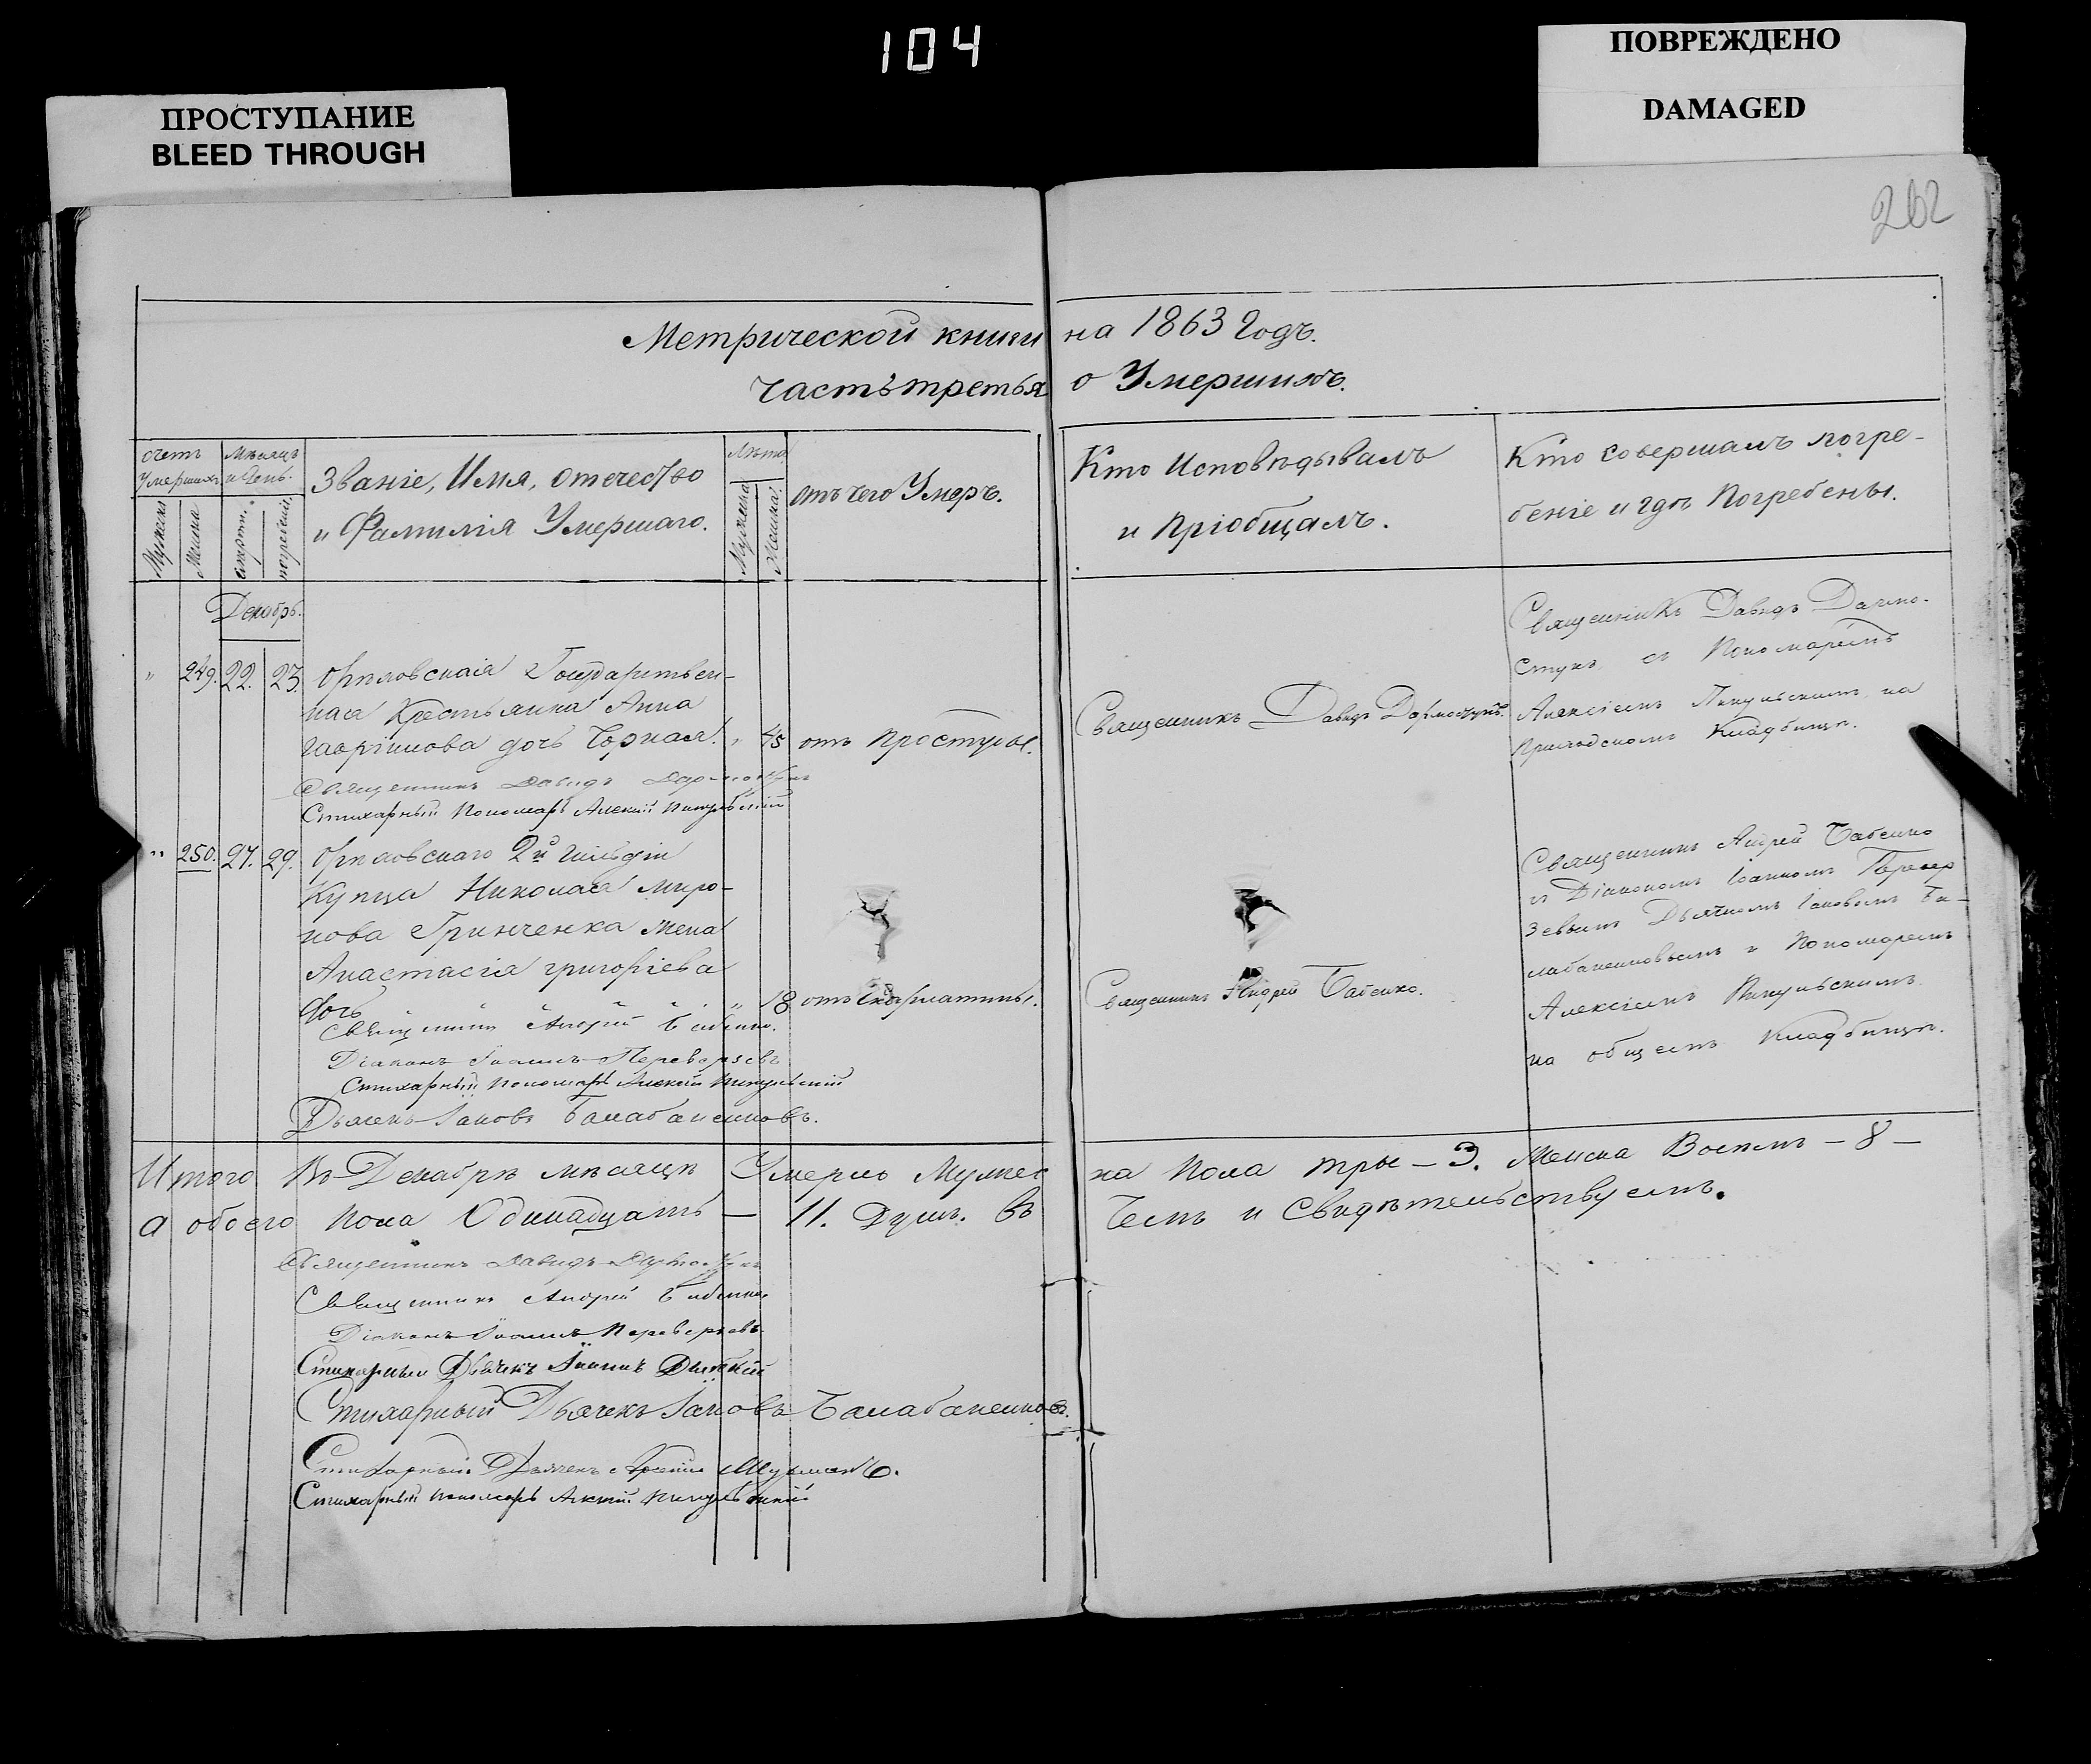 104
ПРОСТУПАНИЕ
BLEED THROUGH
ПОВРЕЖДЕНО
DAMAGED
262
Метрической книги на 1863 Годъ.
часть третья о Умершихъ.
счетъ Умершихъ
Мѣсяцъ и день.
Званіе, Имя, отечество
и Фамилія Умершаго.
Лѣта
отъ чего Умеръ.
Кто Исповѣдывалъ
и Пріобщалъ.
Кто совершалъ погре-
беніе и гдѣ Погребены.
Мужеска
Женска
смерти.
погребенія.
Мужеска
Женска.
Декабрь.
" 249. 22. 23.
Орѣховская Государствен-
ная Крестьянка Анна
Гавріилова дочь Чорная. " 45 отъ простуды.
Священникъ Давидъ Дармостукъ.
Священникъ Давидъ Дармо-
стукъ съ Пономаремъ
Алексіемъ Пикульскимъ на
Приходскомъ Кладбищѣ.
Священникъ Давидъ Дармостукъ
Стихарный Пономарь Алексій Пикульскій
" 250. 27. 29.
Орѣховскаго 2й гильдіи
Купца Николая Миро-
нова Гринченка жена
Анастасія григоріева
дочь " 18 отъ скарлатины.
Священникъ Андрей Бабенко.
Священникъ Андрей Бабенко
съ Діакономъ Іоанномъ Перевер
зевымъ Дьячкомъ Іаковомъ Ба-
лабаненковымъ и Пономаремъ
Алексіемъ Пикульскимъ
на общемъ Кладбищѣ.
Священникъ Андрей Бабенко.
Діаконъ Іоаннъ Переверзевъ
Стихарный Пономарь Алексій Пикульскій
Дьячекъ Іаковъ Балабаненковъ.
Итого Въ Декабрѣ мѣсяцѣ Умерло Мужес ка пола три – 3. Женска Восемь – 8 –
а обоего пола Одинадцать — 11. Душъ. Въ Чемъ и Свидѣтельствуемъ.
Священникъ Давидъ Дармостукъ
Священникъ Андрей Бабенко
Діаконъ Іоаннъ Переверзевъ
Стихарный Дьячекъ Іоаннъ
Стихарный Дьячекъ Іаковъ Балабаненковъ.
Стихарный Дьячекъ
Стихарный пономарь Алексій Пикульскій